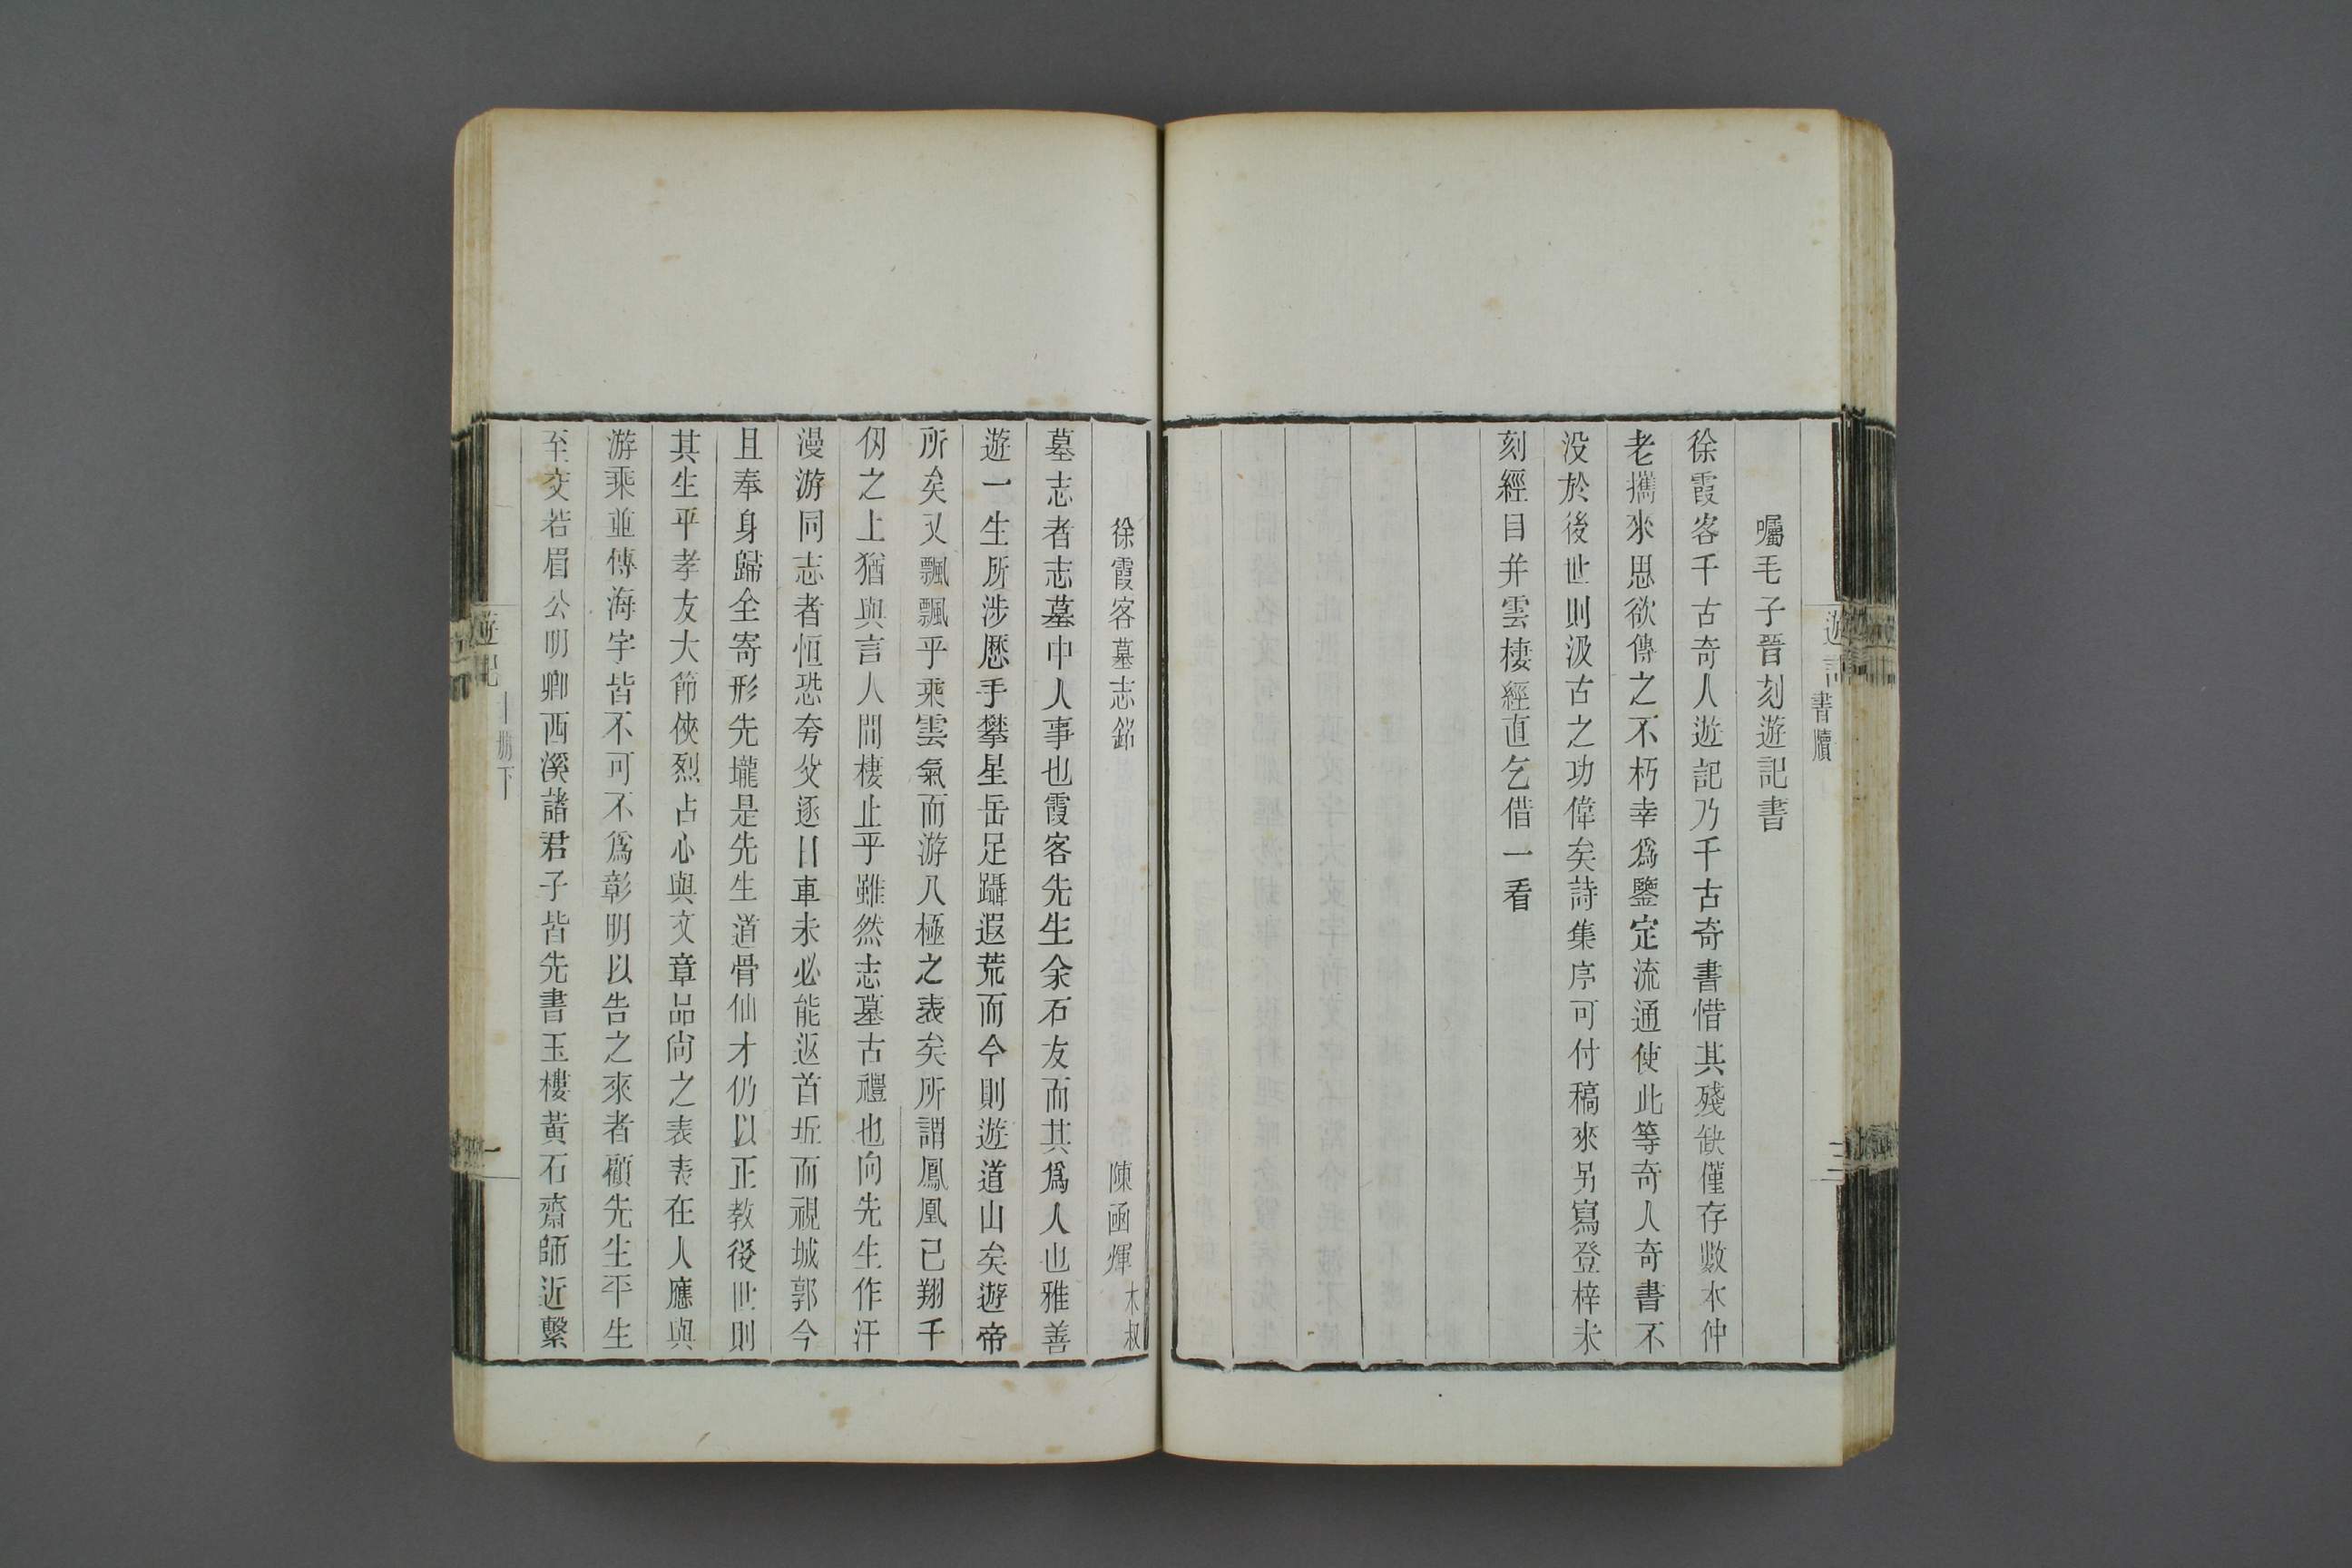 囑毛子晉刻遊記書
徐霞客千古奇人遊記乃千古奇書惜其殘缺僅存數本仲
老攜來思欲傳之不朽幸爲鑒定流通使此等奇人奇書不
没於後世則汲古之功偉矣詩集序可付稿來另寫登梓未
刻經目并雲棲經直乞借一看
書牘
徐霞客墓志銘 陳函煇木叔
墓志者志墓中人事也霞客先生余石友而其爲人也雅善
遊一生所涉歷手攀星岳足躡遐荒而今則遊道山矣遊帝
所矣又飄飄乎乘雲氣而游八極之表矣所謂鳳凰已翔千
仞之上猶與言人間棲止乎雖然志墓古禮也向先生作汗
漫游同志者恒恐夸父逐日車未必能返首丘而視城郭今
且奉身歸全寄形先壠是先生道骨仙才仍以正教後世則
其生平孝友大節俠烈古心與文章品尚之表表在人應與
游乘並傳海宇皆不可不爲彰明以告之來者顧先生平生
至交若眉公明卿西溪諸君子皆先書玉樓黃石齋師近繫
遊記
下
一